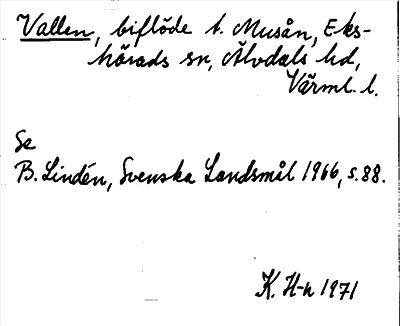 Vallen, biflöde t. Musån, Eks-
härads sn, Älvdals hd,
Värml. l.
Se
B. Lindén, Svenska Landsmål 1966, s. 88.
K. H-n 1971